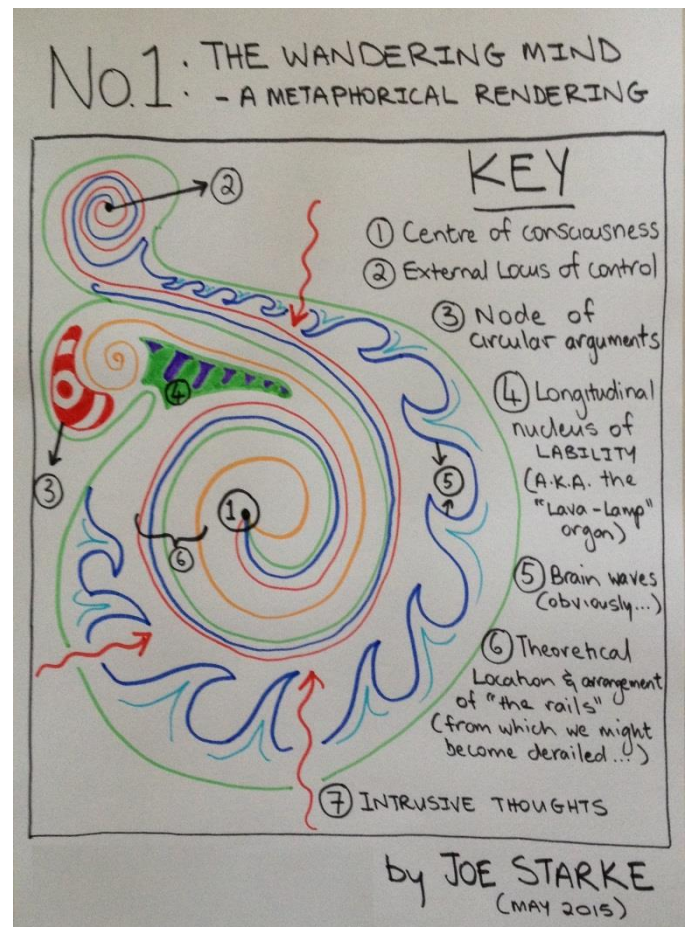 No.1: THE WANDERING MIND
- A METAPHORICAL RENDERING
KEY
① Centre of consciousness
② External Locus of control
③ Node of
circular arguments
④ Longitudinal
nucleus of
LABILITY
(A.K.A. the
"Lava-Lamp"
organ)
⑤ Brain waves
(obviously...)
⑥ Theoretical
Location & arrangement
of "the rails"
(from which we might
become derailed...)
⑦ INTRUSIVE THOUGHTS
②
④
③
①
⑤
⑥
by JOE STARKE
(MAY 2015)